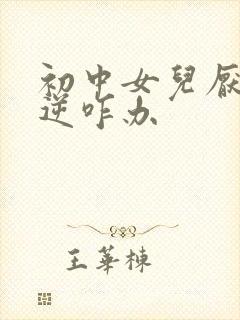 初中女兒厭
逆咋办
王華棟